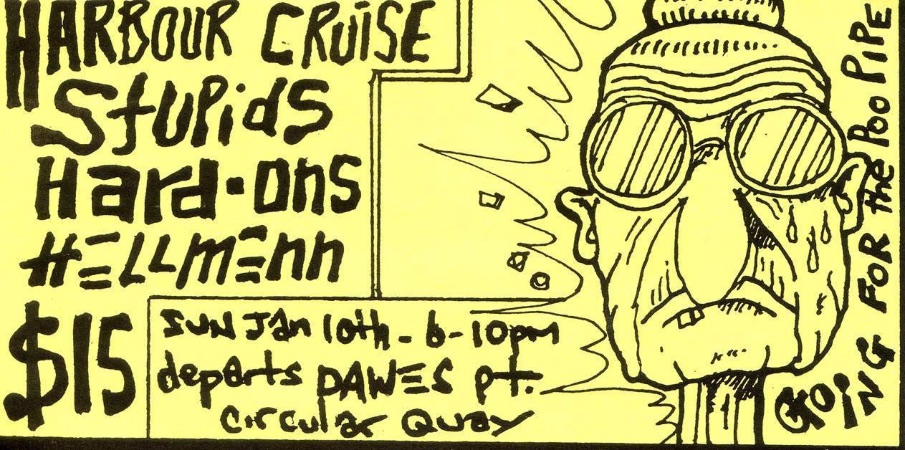 HARBOUR CRUISE
Stupids
Hard-ons
HELLMENN
$15
SUN JAn 10th - 6-10pm
departs DAWES pt.
circular Quay
GOING FOR the Poo PIPE